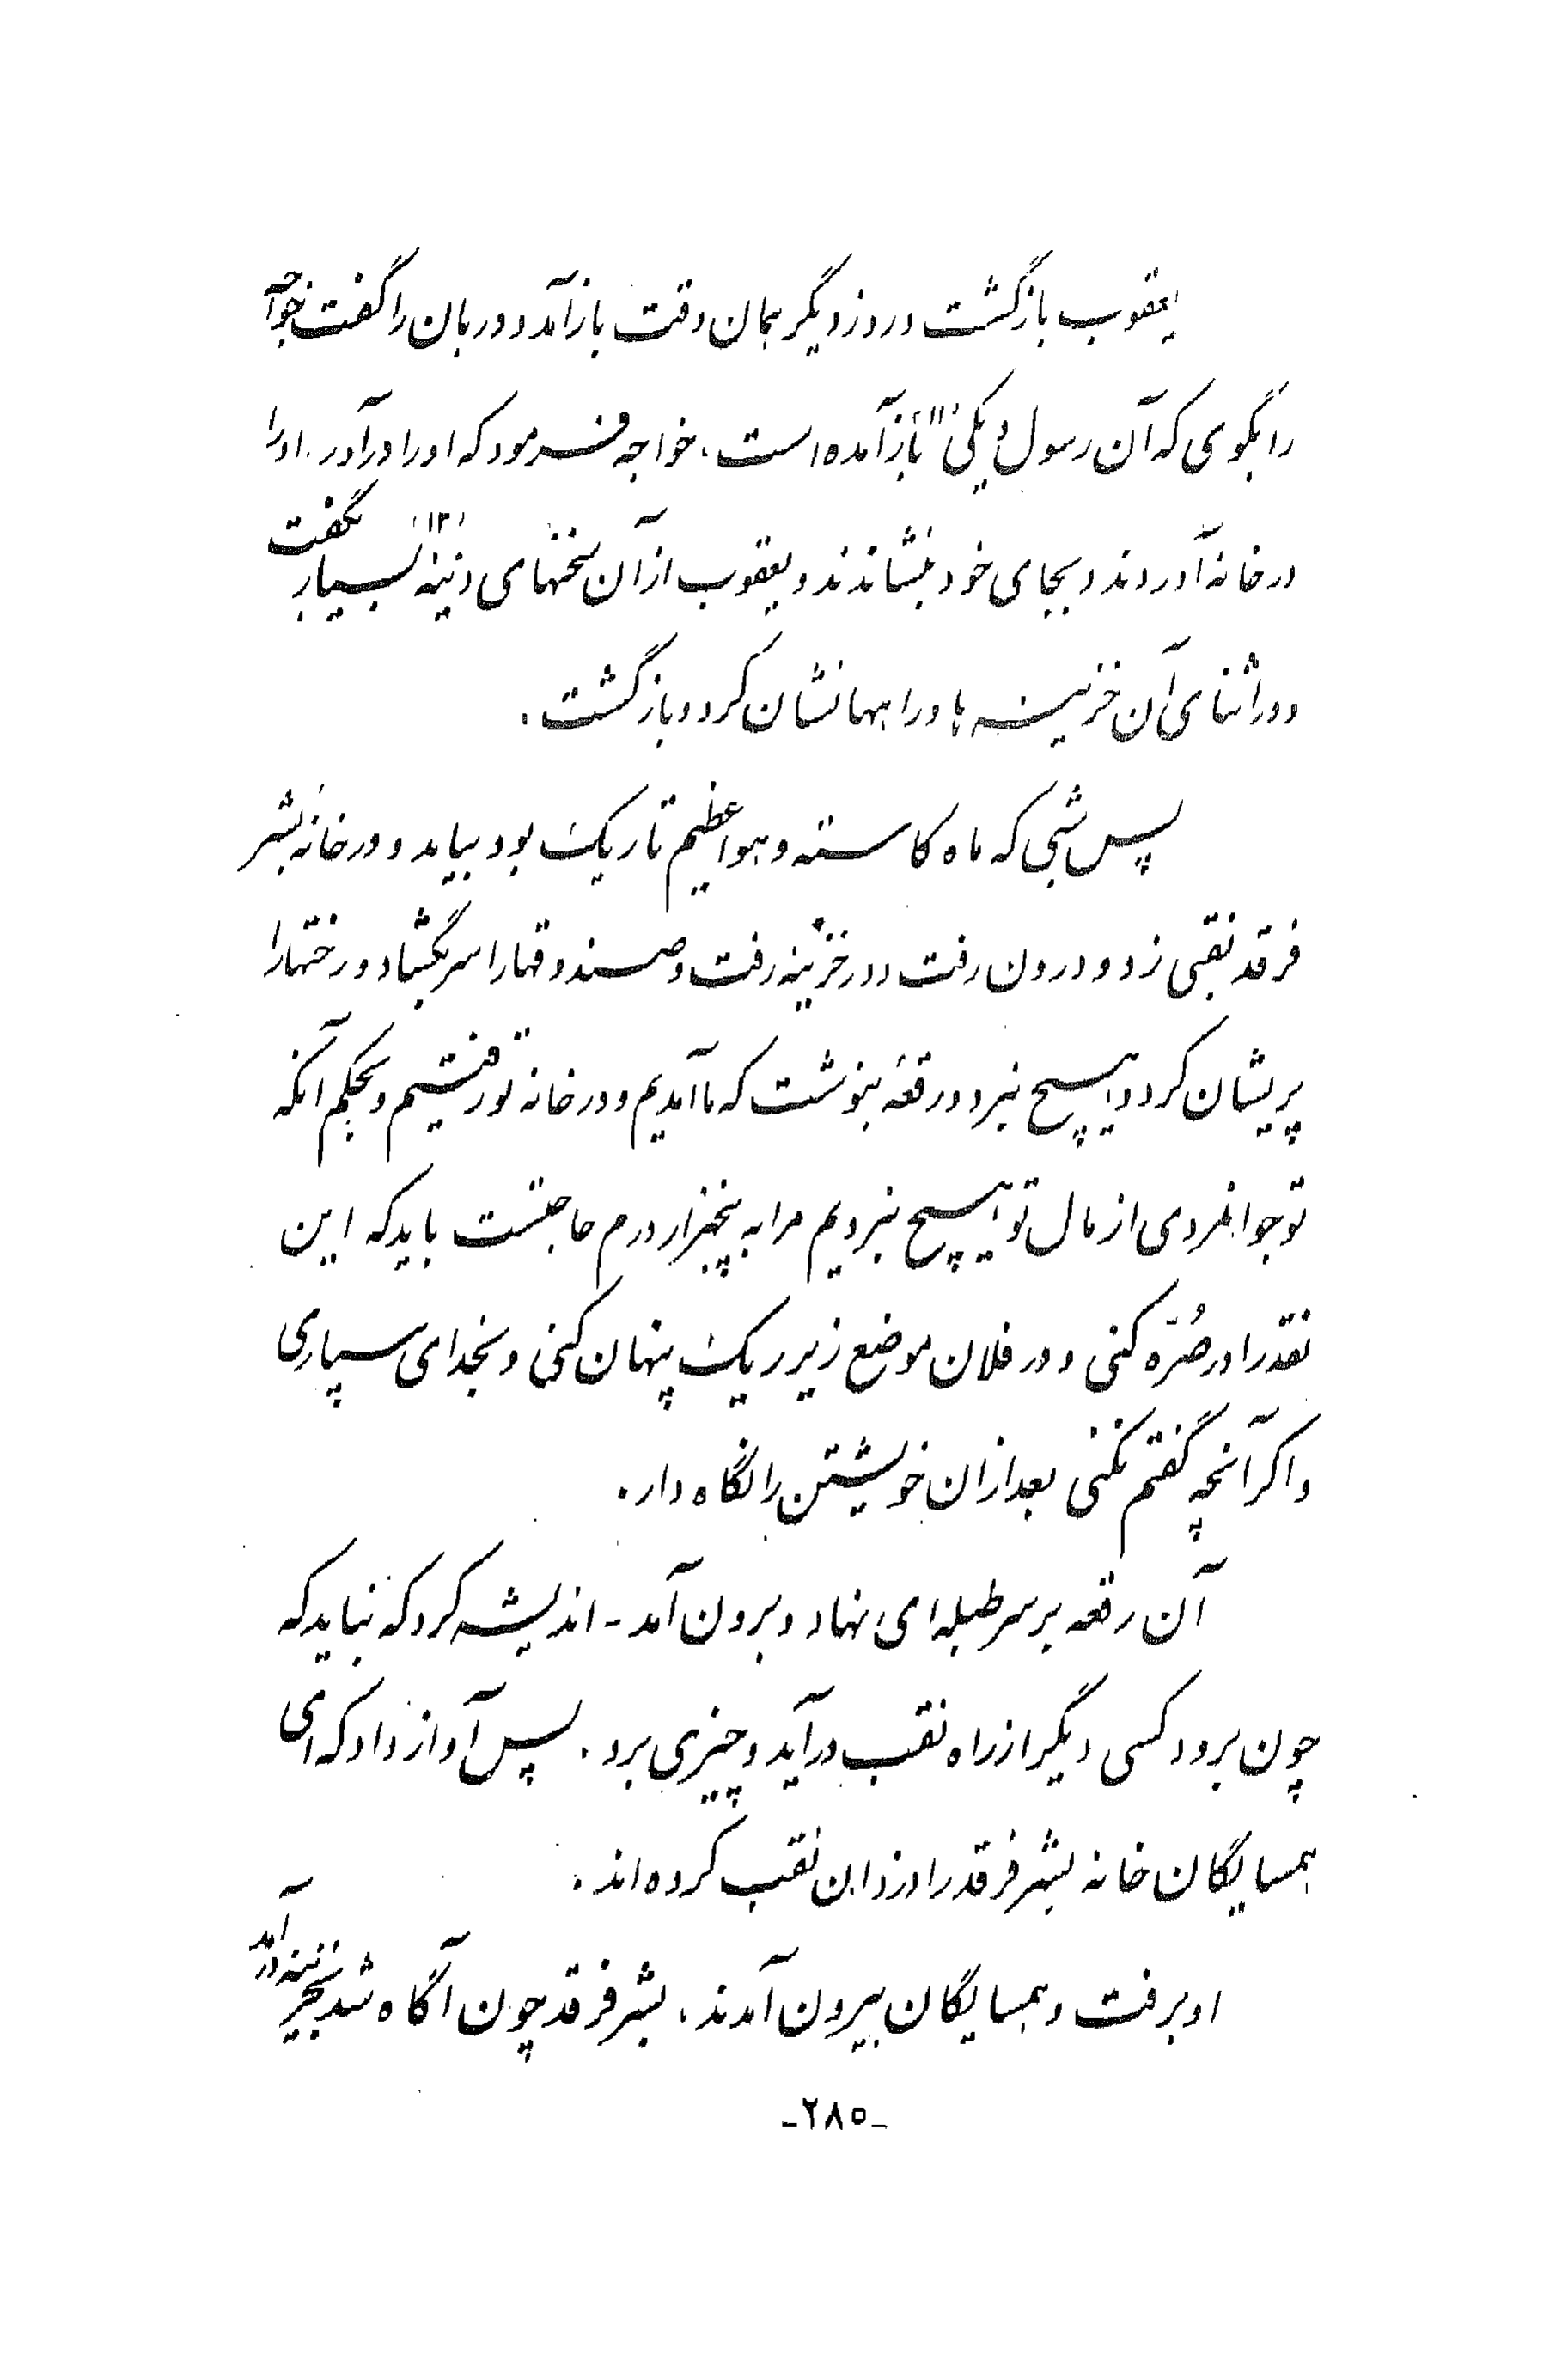 یعقوب بازگشت و روز دیگر همان وقت باز آمد و دربان را گفت خواجه
را بگوی که آن رسول دیکی (۱۱) باز آمده است، خواجه فرمود که او را درآور. او را
در خانه آوردند و بجای خود بنشاندند و یعقوب از آن سخنهای دنینه (۱۲) بسیار بگفت
و در اثنای آن خزینه ها و راهها نشان کرد و بازگشت.
پس شبی که ماه کاسته و هوا عظیم تاریک بود بیامد و در خانه بشر
فرقد نقبی زد و درون رفت و در خزینه رفت و صندوقها را سر بگشاد و رختها را
پریشان کرد و هیچ نبرد و رقعهٔ بنوشت که ما آمدیم و در خانه تو رفتیم و بحکم آنکه
تو جوانمردی از مال تو هیچ نبردیم مرا به پنجهزار درم حاجتست باید که این
نقد را در صُرّه کنی و در فلان موضع زیر ریک پنهان کنی و بخدای سپاری
و اکر آنچه گفتم نکنی بعد از آن خویشتن را نگاه دار.
آن رقعه بر سر طبله ای نهاد و برون آمد - اندیشه کرد که نباید که
چون برود کسی دیگر از راه نقب درآید و چیزی برد. پس آواز داد که ای
همسایگان خانه بشر فرقد را دزدان نقب کرده اند.
او برفت و همسایگان بیرون آمدند، بشر فرقد چون آگاه شد بخزینه درآمد
-۲۸۵-